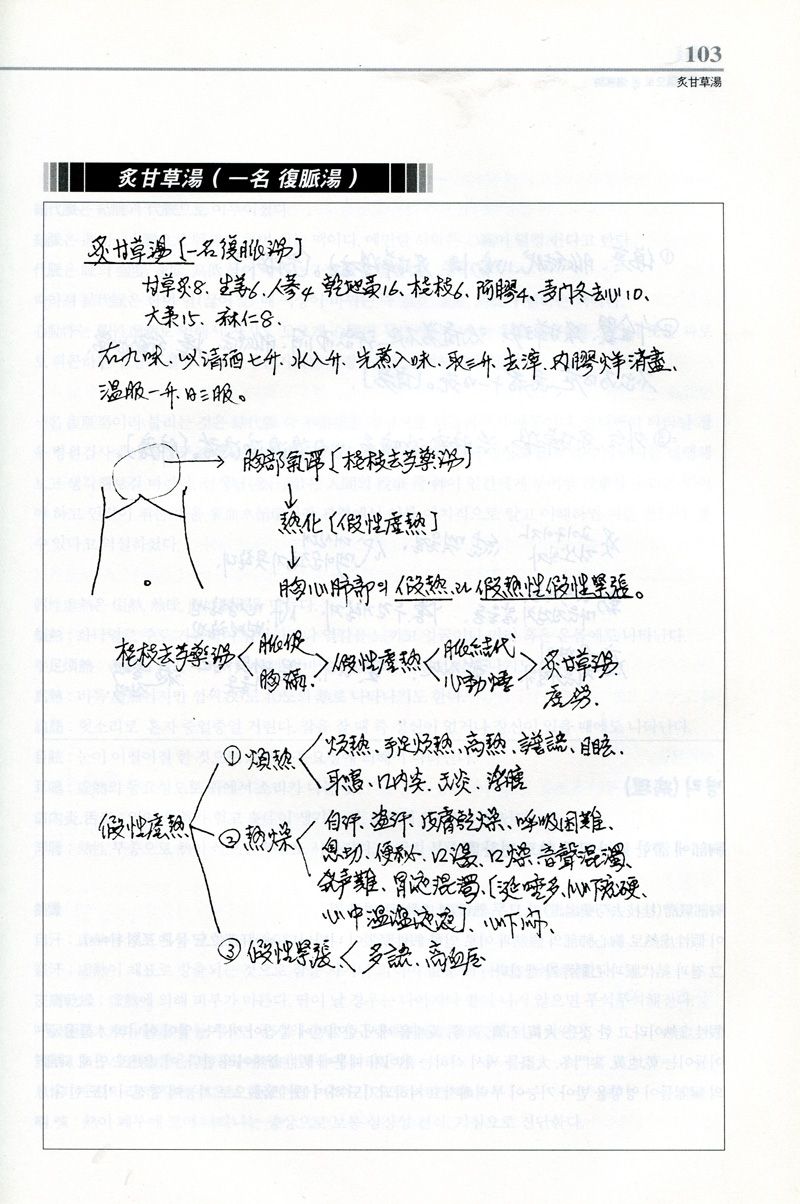 103
炙甘草湯
炙甘草湯 ( 一名 復脈湯 )
炙甘草湯 [一名復脈湯]
甘草炙8、生姜6、人蔘4、乾地黃16、桂枝6、阿膠4、麥門冬去心10、
大棗15、麻仁8.
右九味、以清酒七升、水八升、先煮八味、取三升、去滓、內膠烊消盡、
溫服一升、日三服。
胸部氣滯 [桂枝去芍藥湯]
熱化 [假性虛熱]
胸心肺部의 假熱과 假熱性假性緊張。
桂枝去芍藥湯 脈促 胸滿 假性虛熱 脈結代 心動悸 炙甘草湯 虛勞
① 煩熱 煩熱、手足煩熱、高熱、譫語、目眩、
耳鳴、口內炎、舌炎、浮腫
假性虛熱
② 熱燥 自汗、盜汗、皮膚乾燥、呼吸困難、
息切、便秘、口渴、口燥、音聲混濁、
發声難、胃液混濁、[涎唾多、心下痞硬、
心中溫溫液液]、心下(痞)、
③ 假性緊張 多諾、高血压